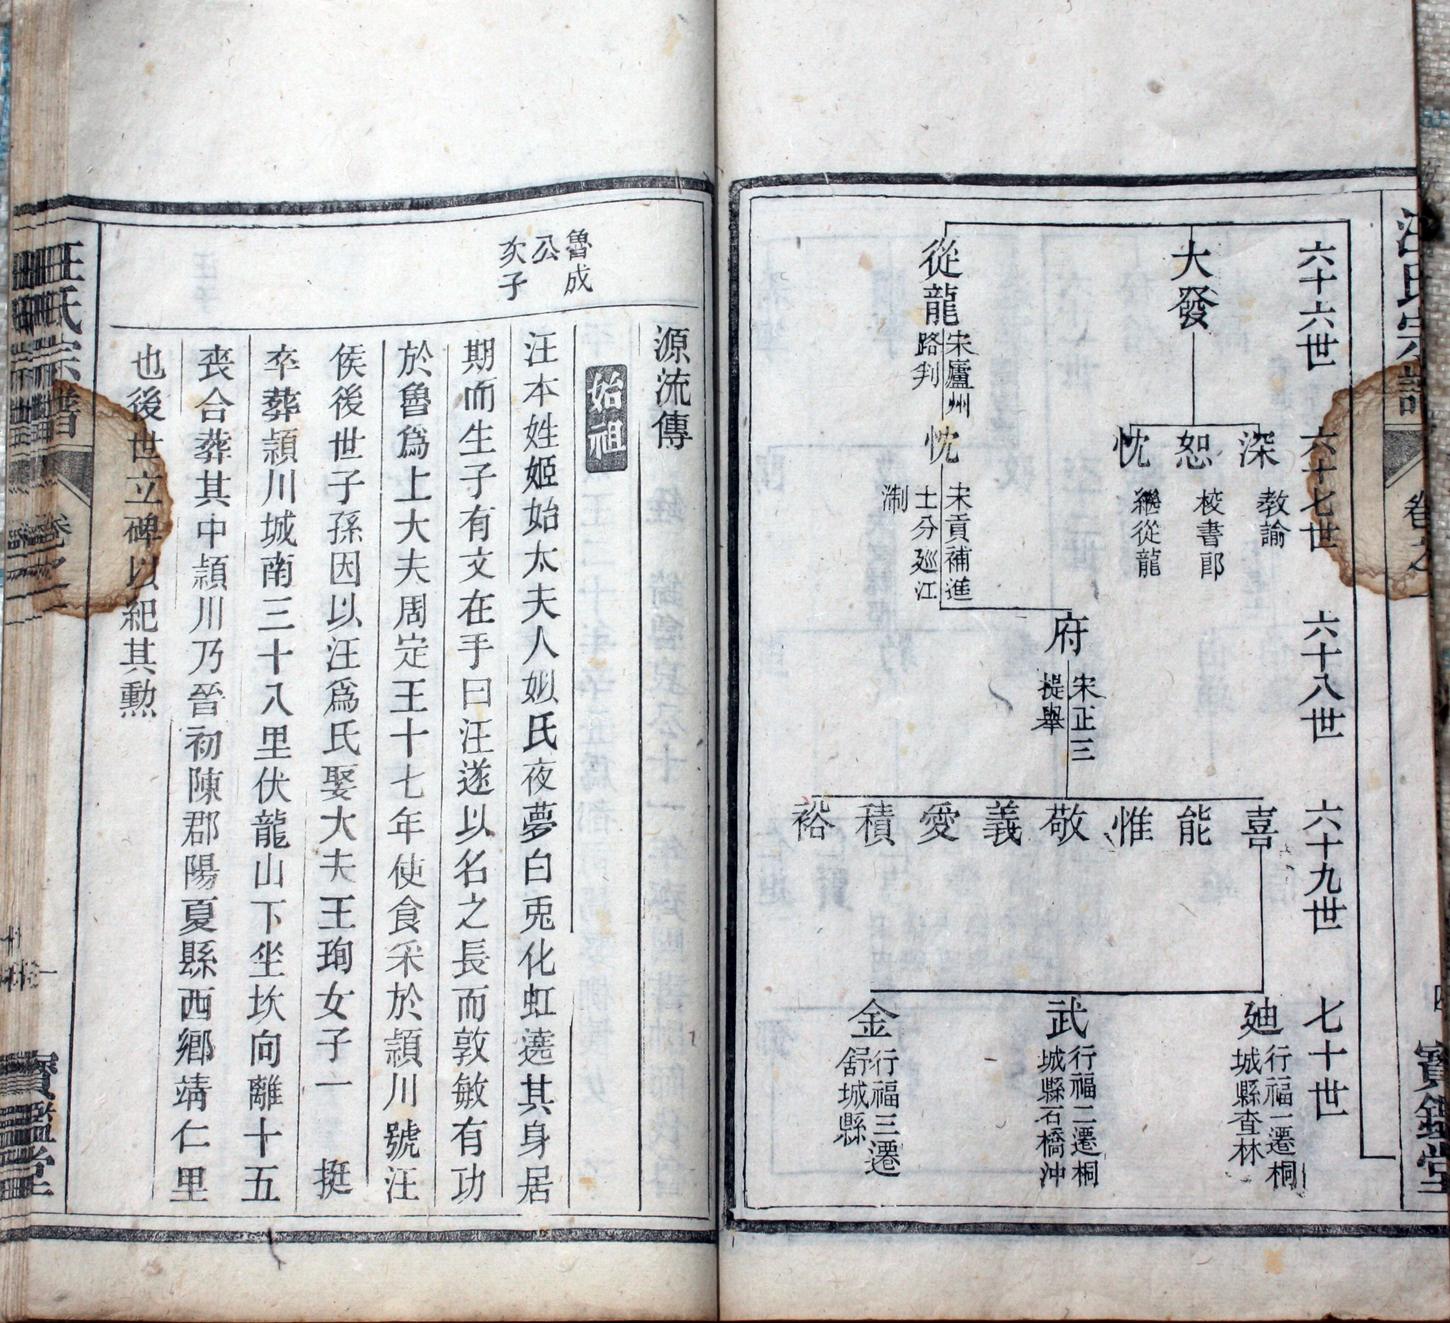 汪氏宗譜
卷之
四
寶鑑堂
六十六世
大發
從龍
宋廬州
路判
六十七世
深
教諭
恕
校書郎
忱
繼從龍
忱
宋貢補進
士分廵江
淛
六十八世
府
宋正三
提舉
六十九世
喜
能
惟
敬
義
愛
積
裕
七十世
廸
行福一遷桐
城縣查林
武
行福二遷桐
城縣石橋沖
金
行福三遷
舒城縣
源流傳
魯成
公
亥子
始祖
汪本姓姬始太夫人姒氏夜夢白兎化虹遶其身居
期而生子有文在手曰汪遂以名之長而敦敏有功
於魯爲上大夫周定王十七年使食采於頴川號汪
侯後世子孫因以汪爲氏娶大夫王珣女子一 挺
卒葬頴川城南三十八里伏龍山下坐坎向離十五
喪合葬其中頴川乃晉初陳郡陽夏縣西鄉靖仁里
也後世立碑以紀其勲
汪氏宗譜
卷之一
寶鑑堂